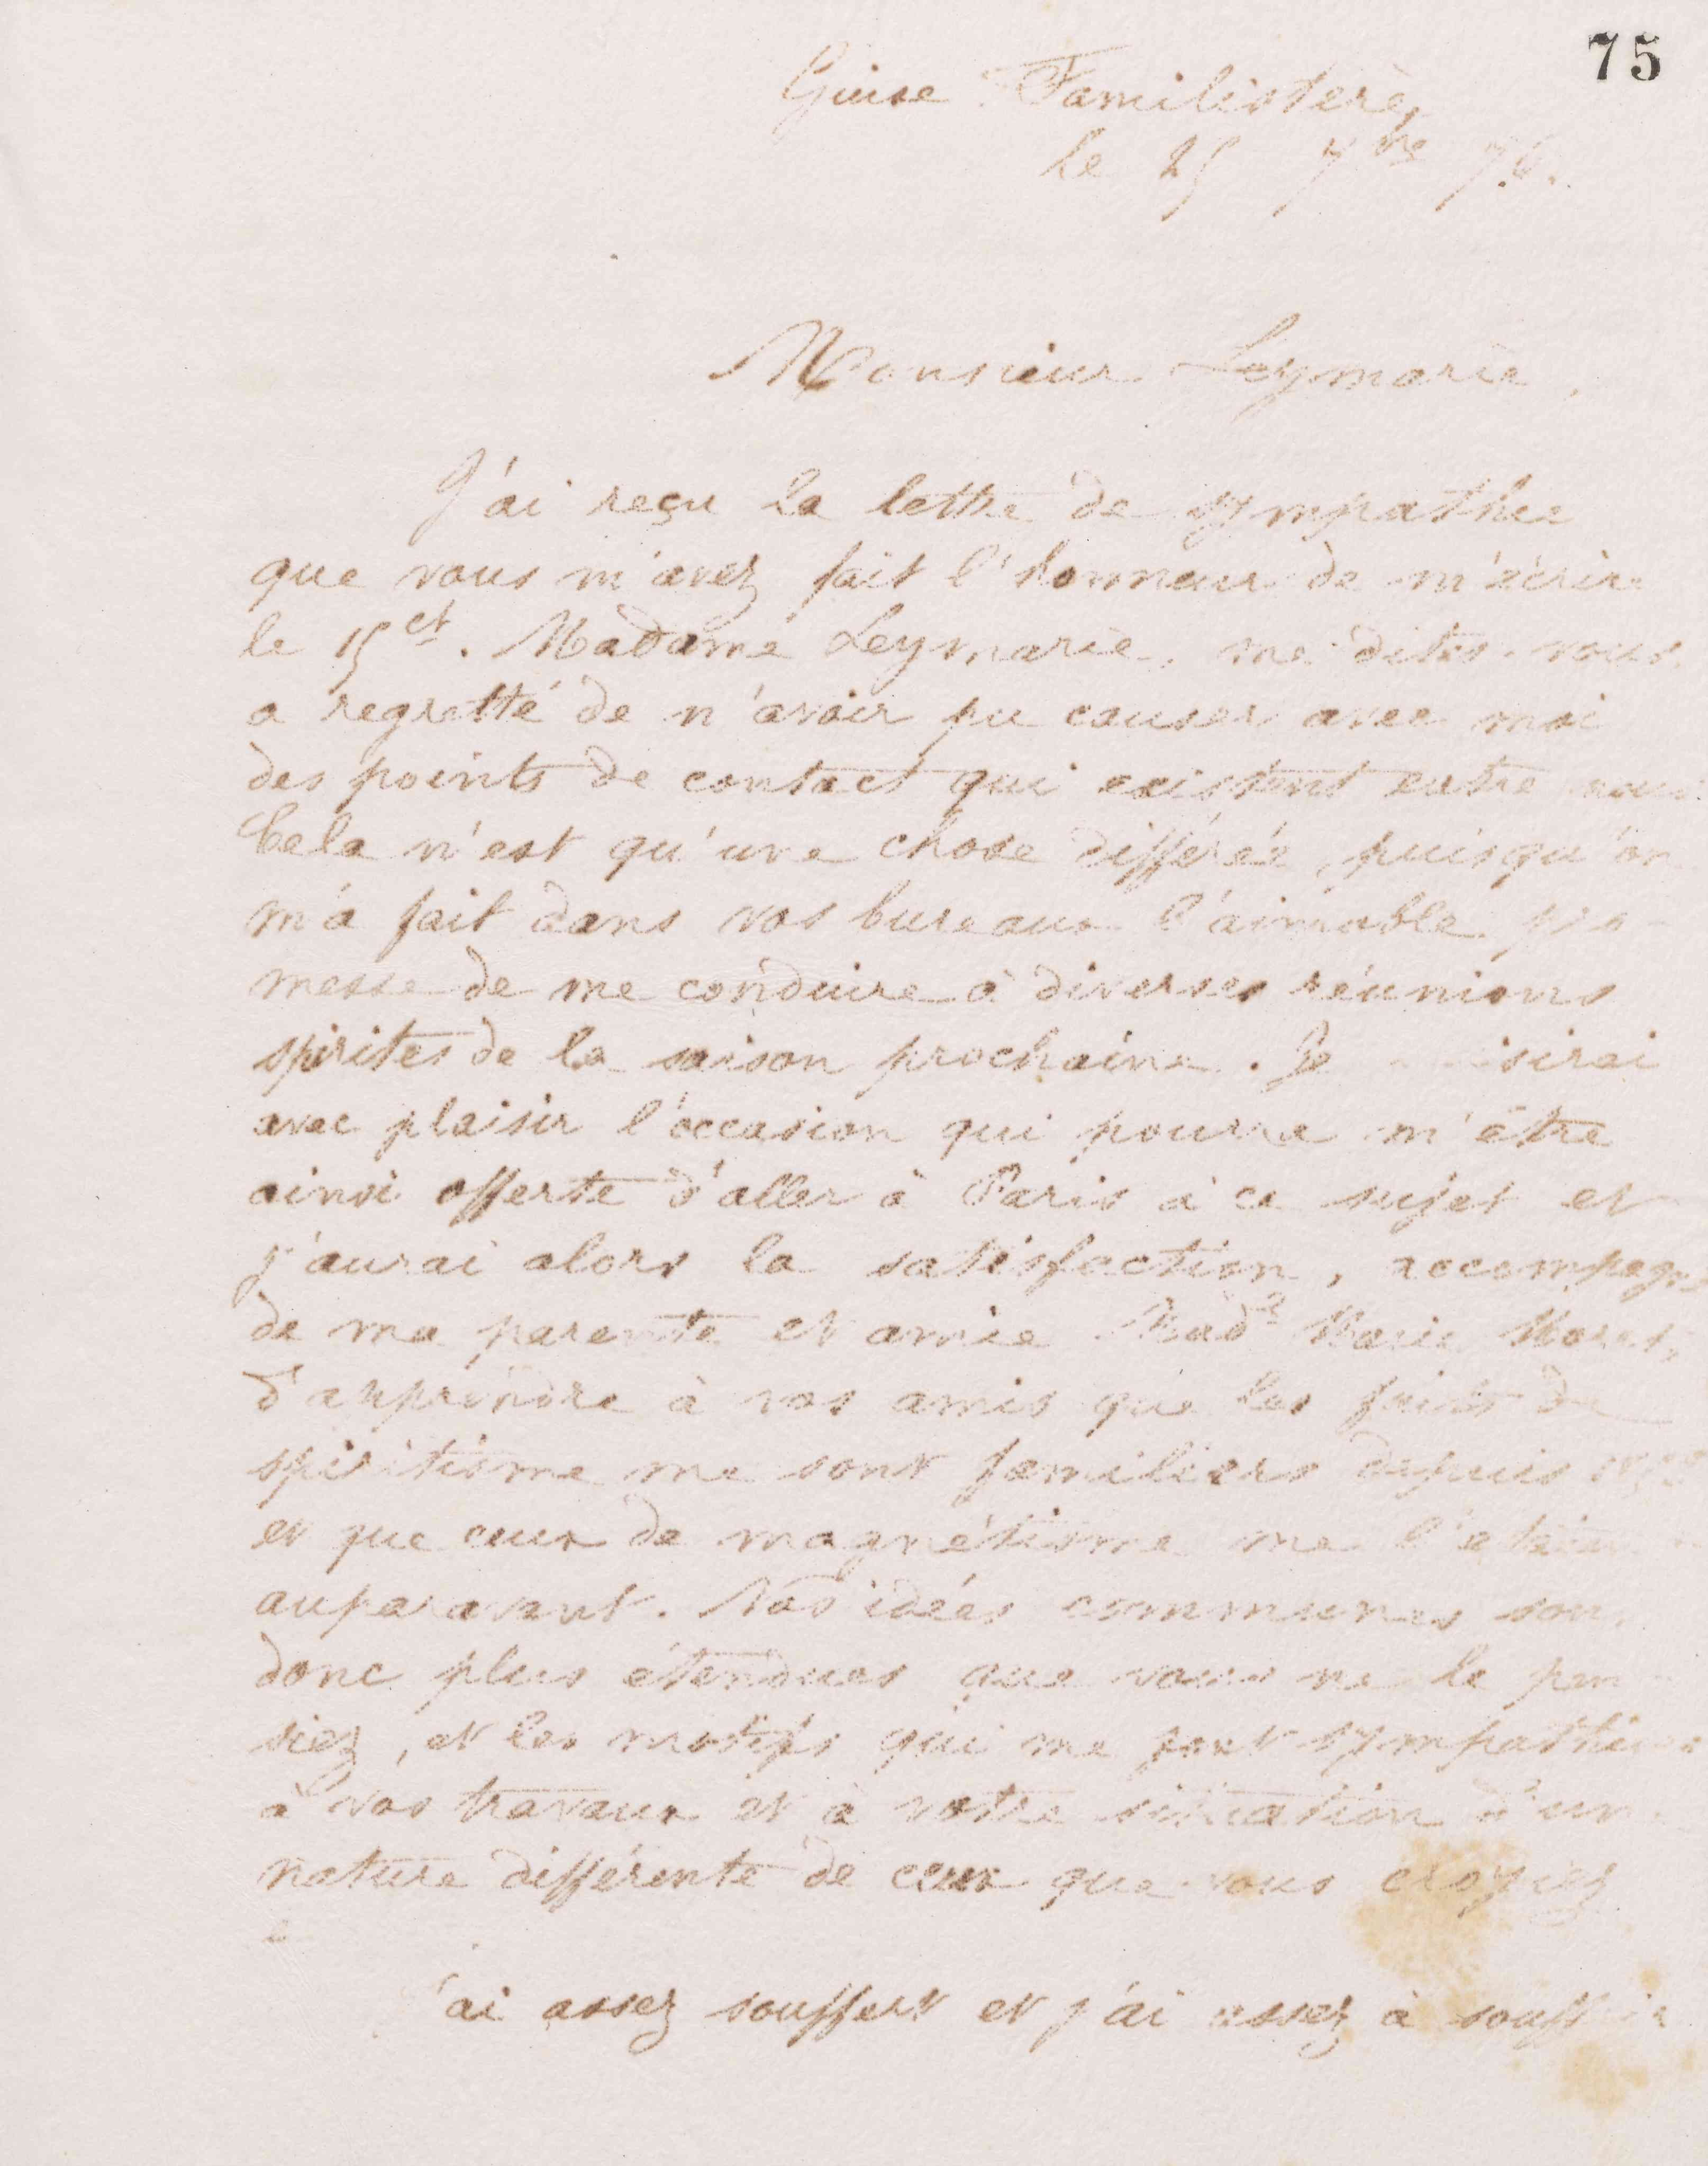 75
Guise Familistère,
le 25 7bre 76.
Monsieur Leymarie,
J'ai reçu la lettre de sympathie
que vous m'avez fait l'honneur de m'écrire
le 15 ct. Madame Leymarie, me dites-vous
a regretté de n'avoir pu causer avec moi
des points de contact qui existent entre nous
Cela n'est qu'une chose différée, puisqu'on
m'a fait dans vos bureaux l'aimable pro-
messe de me conduire à diverses réunions
spirites de la saison prochaine. Je
avec plaisir l'occasion qui pourra m'être
ainsi offerte d'aller à Paris à ce sujet et
j'aurai alors la satisfaction, accompagné
de ma parente et amie Made Marie Moret,
d'apprendre à vos amis que les faits du
spiritisme me sont familiers depuis
et que ceux de magnétisme me l'étaient
auparavant. Nos idées communes sont
donc plus étendues que vous ne le pen
siez, et les motifs qui me font sympathiser
à vos travaux et à votre situation d'une
nature différente de ceux que vous croyiez
'ai assez souffert et j'ai assez à souffrir